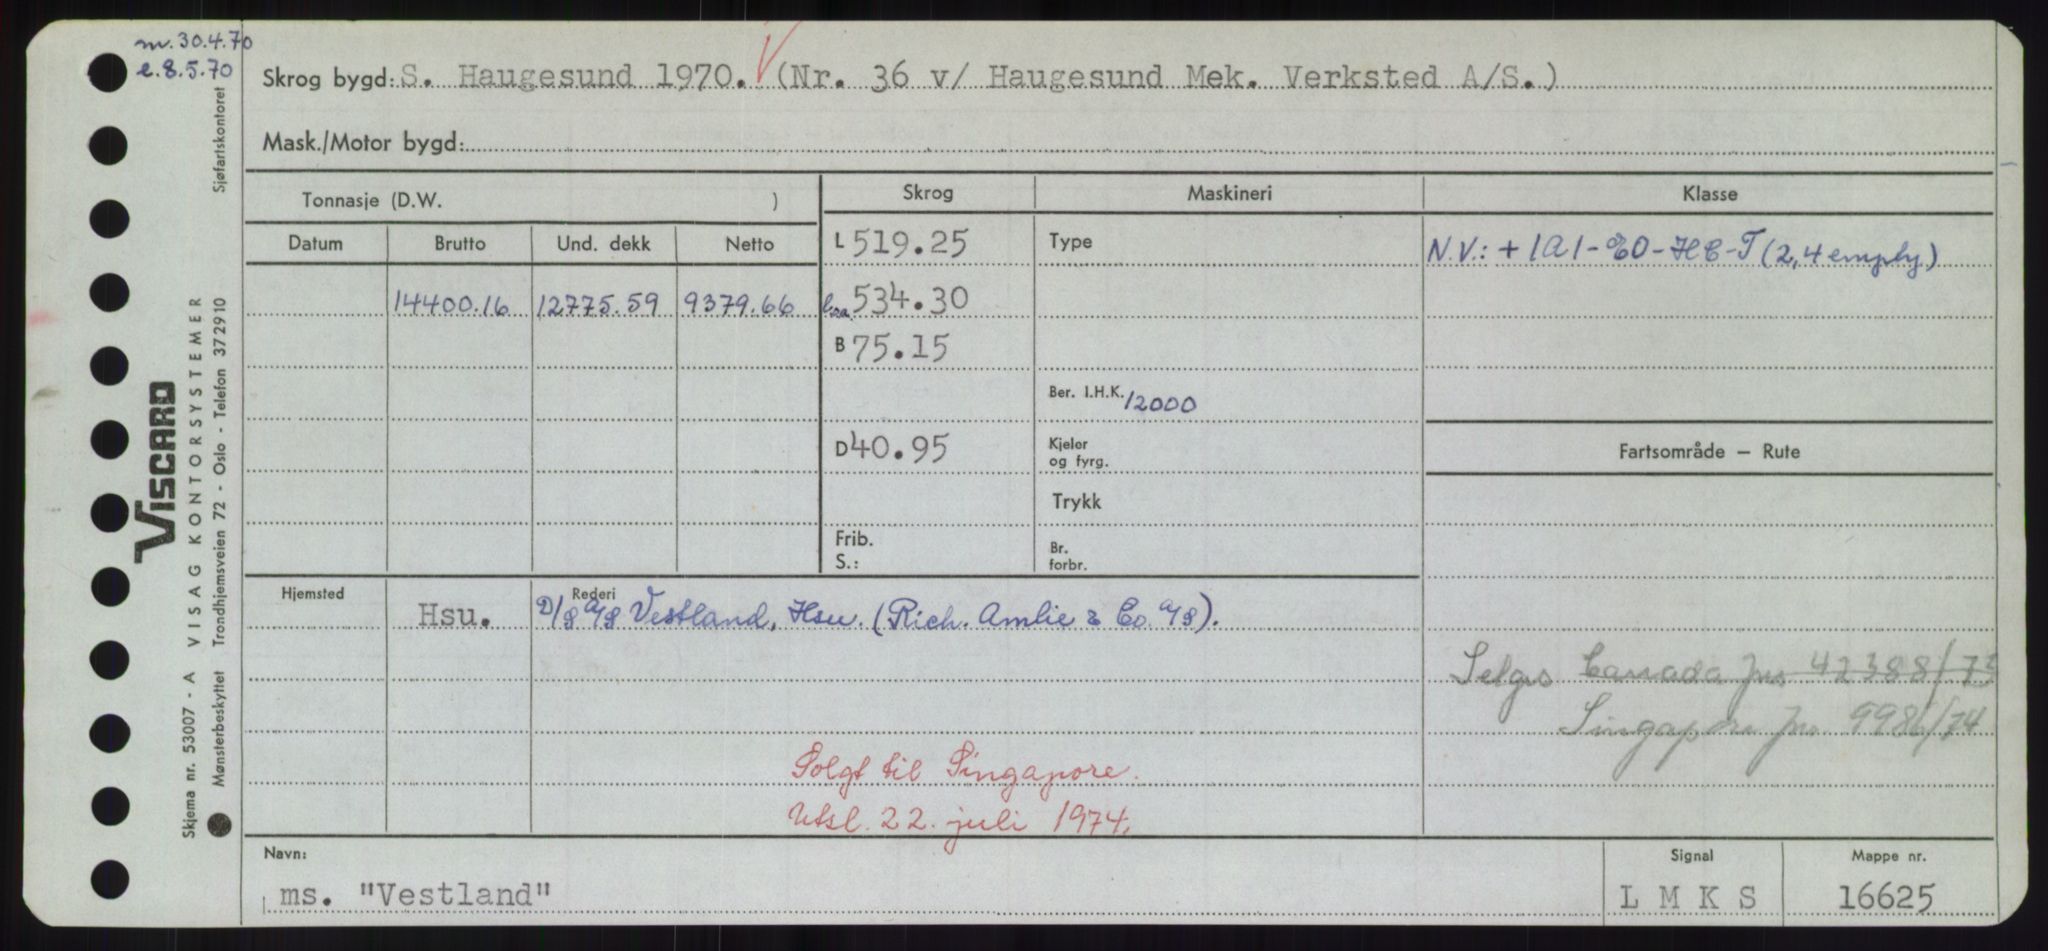 m. 30.4.70
e. 8.5.70
Skrog bygd: S. Haugesund 1970. (Nr. 36 v/ Haugesund Mek. Verksted A/S.)
Mask./Motor bygd:
Tonnasje (D.W. )
Skrog Maskineri Klasse
Datum Brutto Und. dekk Netto
L 519.25 Type N.V.: + 1A1 - EO - HC - T (2,4 empty)
14400.16 12775.59 9379.66 534.30
B 75.15
Ber. I.H.K. 12000
D 40.95 Kjeler og fyrg.
Fartsområde – Rute
Trykk
Frib.
S.:
Br. forbr.
Hjemsted Rederi
Hsu. D/S A/S Vestland, Hsu. (Rich. Amlie & Co. A/S).
Selges Canada jnr. 42388/73
Singapore jnr. 9986/74
Solgt til Singapore.
Utsl. 22. juli 1974.
Navn: Signal Mappe nr.
ms. "Vestland" L M K S 16625
VISCARD
Skjema nr. 53007 - A VISAG KONTORSYSTEMER
Mønsterbeskyttet Trondhjemsveien 72 - Oslo - Telefon 372910 Sjøfartskontoret